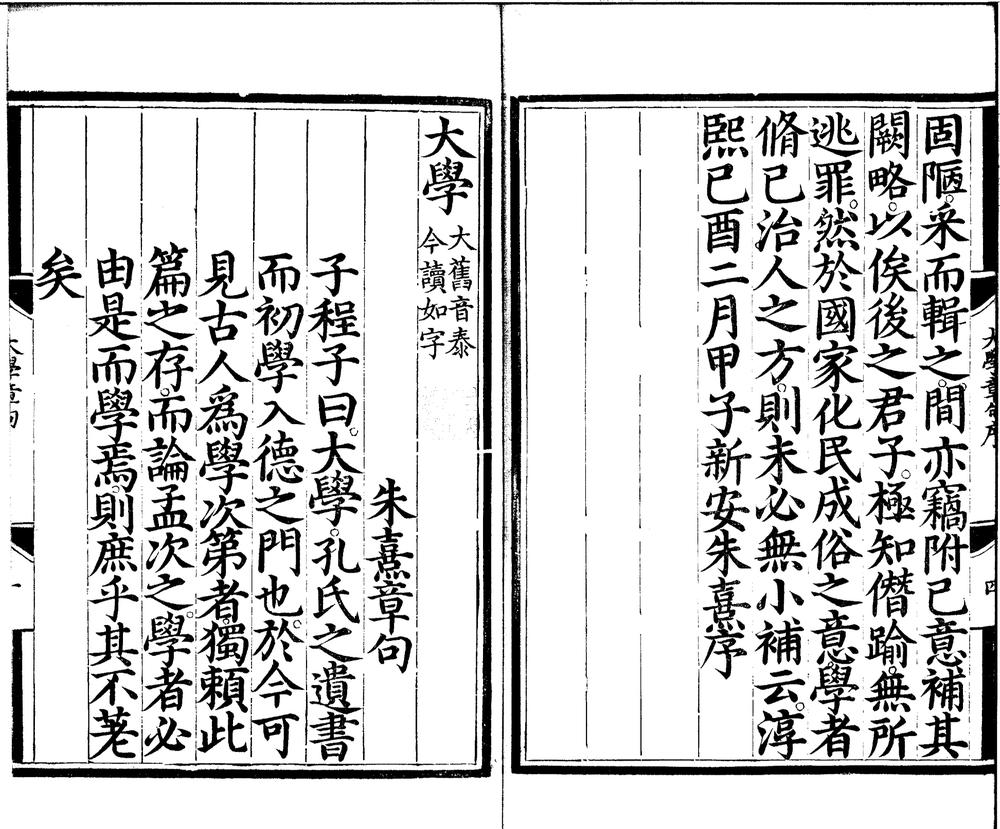 固陋。采而輯之。間亦竊附己意補其
闕略。以俟後之君子。極知僭踰。無所
逃罪。然於國家化民成俗之意。學者
脩己治人之方。則未必無小補云。淳
熙己酉二月甲子新安朱熹序
大學章句序
四
大學 大舊音泰
今讀如字
朱熹章句
子程子曰。大學。孔氏之遺書
而初學入德之門也。於今可
見古人爲學次第者。獨賴此
篇之存。而論孟次之。學者必
由是而學焉。則庶乎其不差
矣
大學章句
一